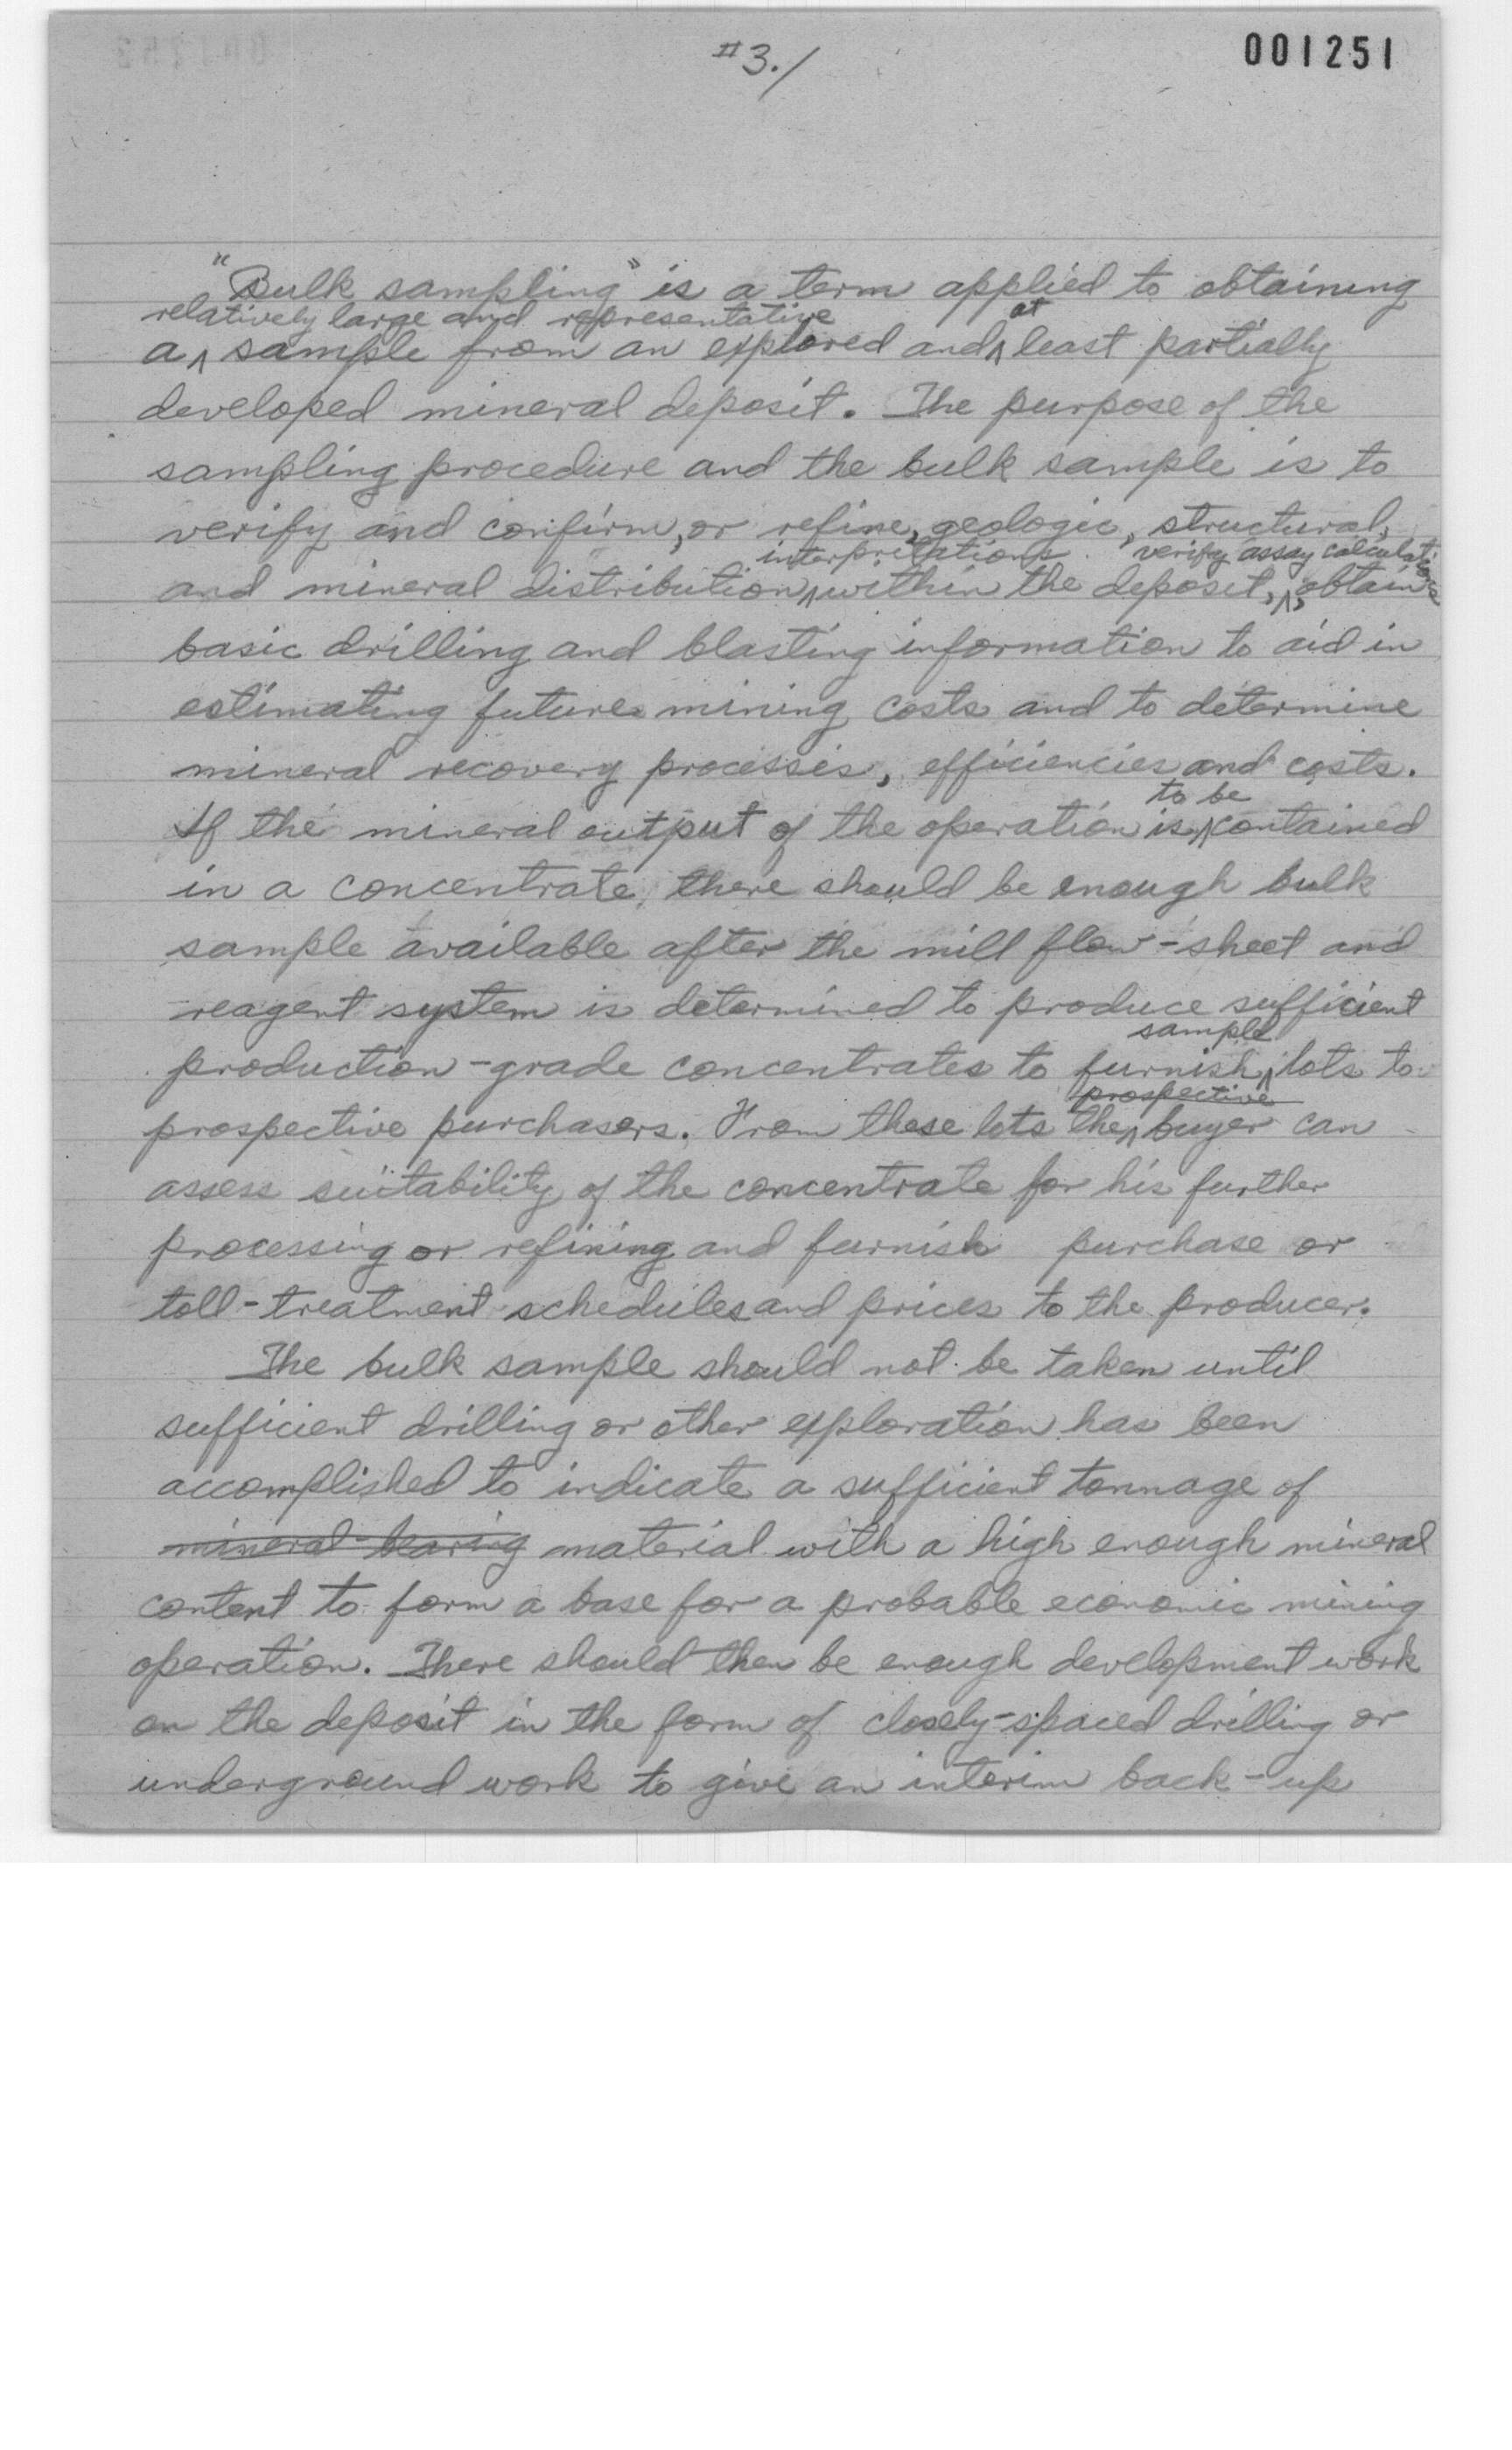 #3./
001251
"Bulk sampling" is a term applied to obtaining
relatively large and representative at
a ^ sample from an explored and ^ least partially
developed mineral deposit. The purpose of the
sampling procedure and the bulk sample is to
verify and confirm, or refine, geologic, structural,
interpretations verify assay calculations
and mineral distribution ^ within the deposit, ^, obtain
basic drilling and blasting information to aid in
estimating future mining costs and to determine
mineral recovery processes, efficiencies and costs.
to be
If the mineral output of the operation is ^ contained
in a concentrate, there should be enough bulk
sample available after the mill flow-sheet and
reagent system is determined to produce sufficient
sample
production-grade concentrates to furnish ^ lots to
prospective
prospective purchasers. From these lots the ^ buyer can
assess suitability of the concentrate for his further
processing or refining and furnish purchase or
toll-treatment schedules and prices to the producer.
The bulk sample should not be taken until
sufficient drilling or other exploration has been
accomplished to indicate a sufficient tonnage of
mineral-bearing material with a high enough mineral
content to form a base for a probable economic mining
operation. There should then be enough development work
on the deposit in the form of closely-spaced drilling or
underground work to give an interim back-up